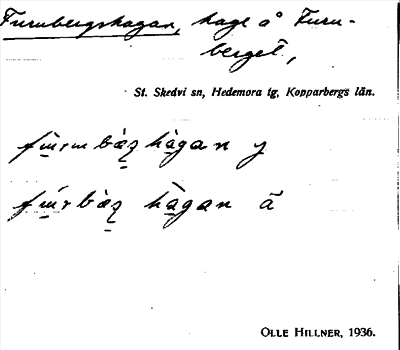 Furubergshagan, hage å Furu-
berget,
St. Skedvi sn, Hedemora tg, Kopparbergs län.
hàgan y
hàgan ä
OLLE HILLNER, 1936.